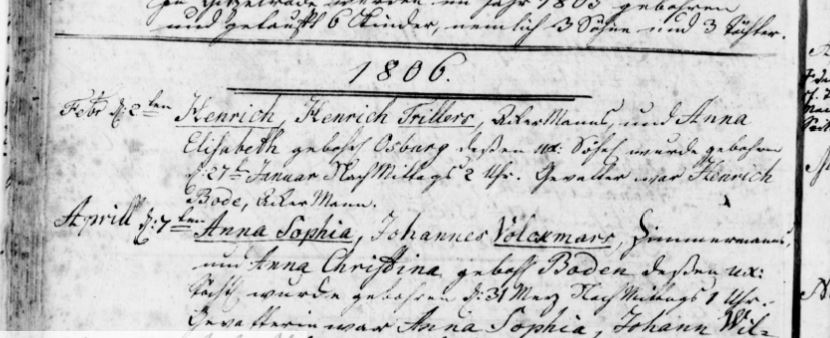 zu Hitzelrode wurden im Jahr 1805 gebohren
und getauft 6 Kinder, nemlich 3 Söhne und 3 Töchter.
1806.
Febr d. 2ten Henrich, Henrich Trillers, AckerManns, und Anna
Elisabeth gebohrn Osburg deßen ux: Söhnl. wurde gebohren
d. 27ten Januar NachMittags 2 Uhr. Gevatter war Henrich
Bode, AckerMann.
Aprill d. 7ten Anna Sophia, Johannes Volckmars, Zimmermanns,
und Anna Christina gebohrn Boden deßen ux:
Töchtl. wurde gebohren d. 31 Merz NachMittags 1 Uhr.
Gevatterin war Anna Sophia, Johann Wil=